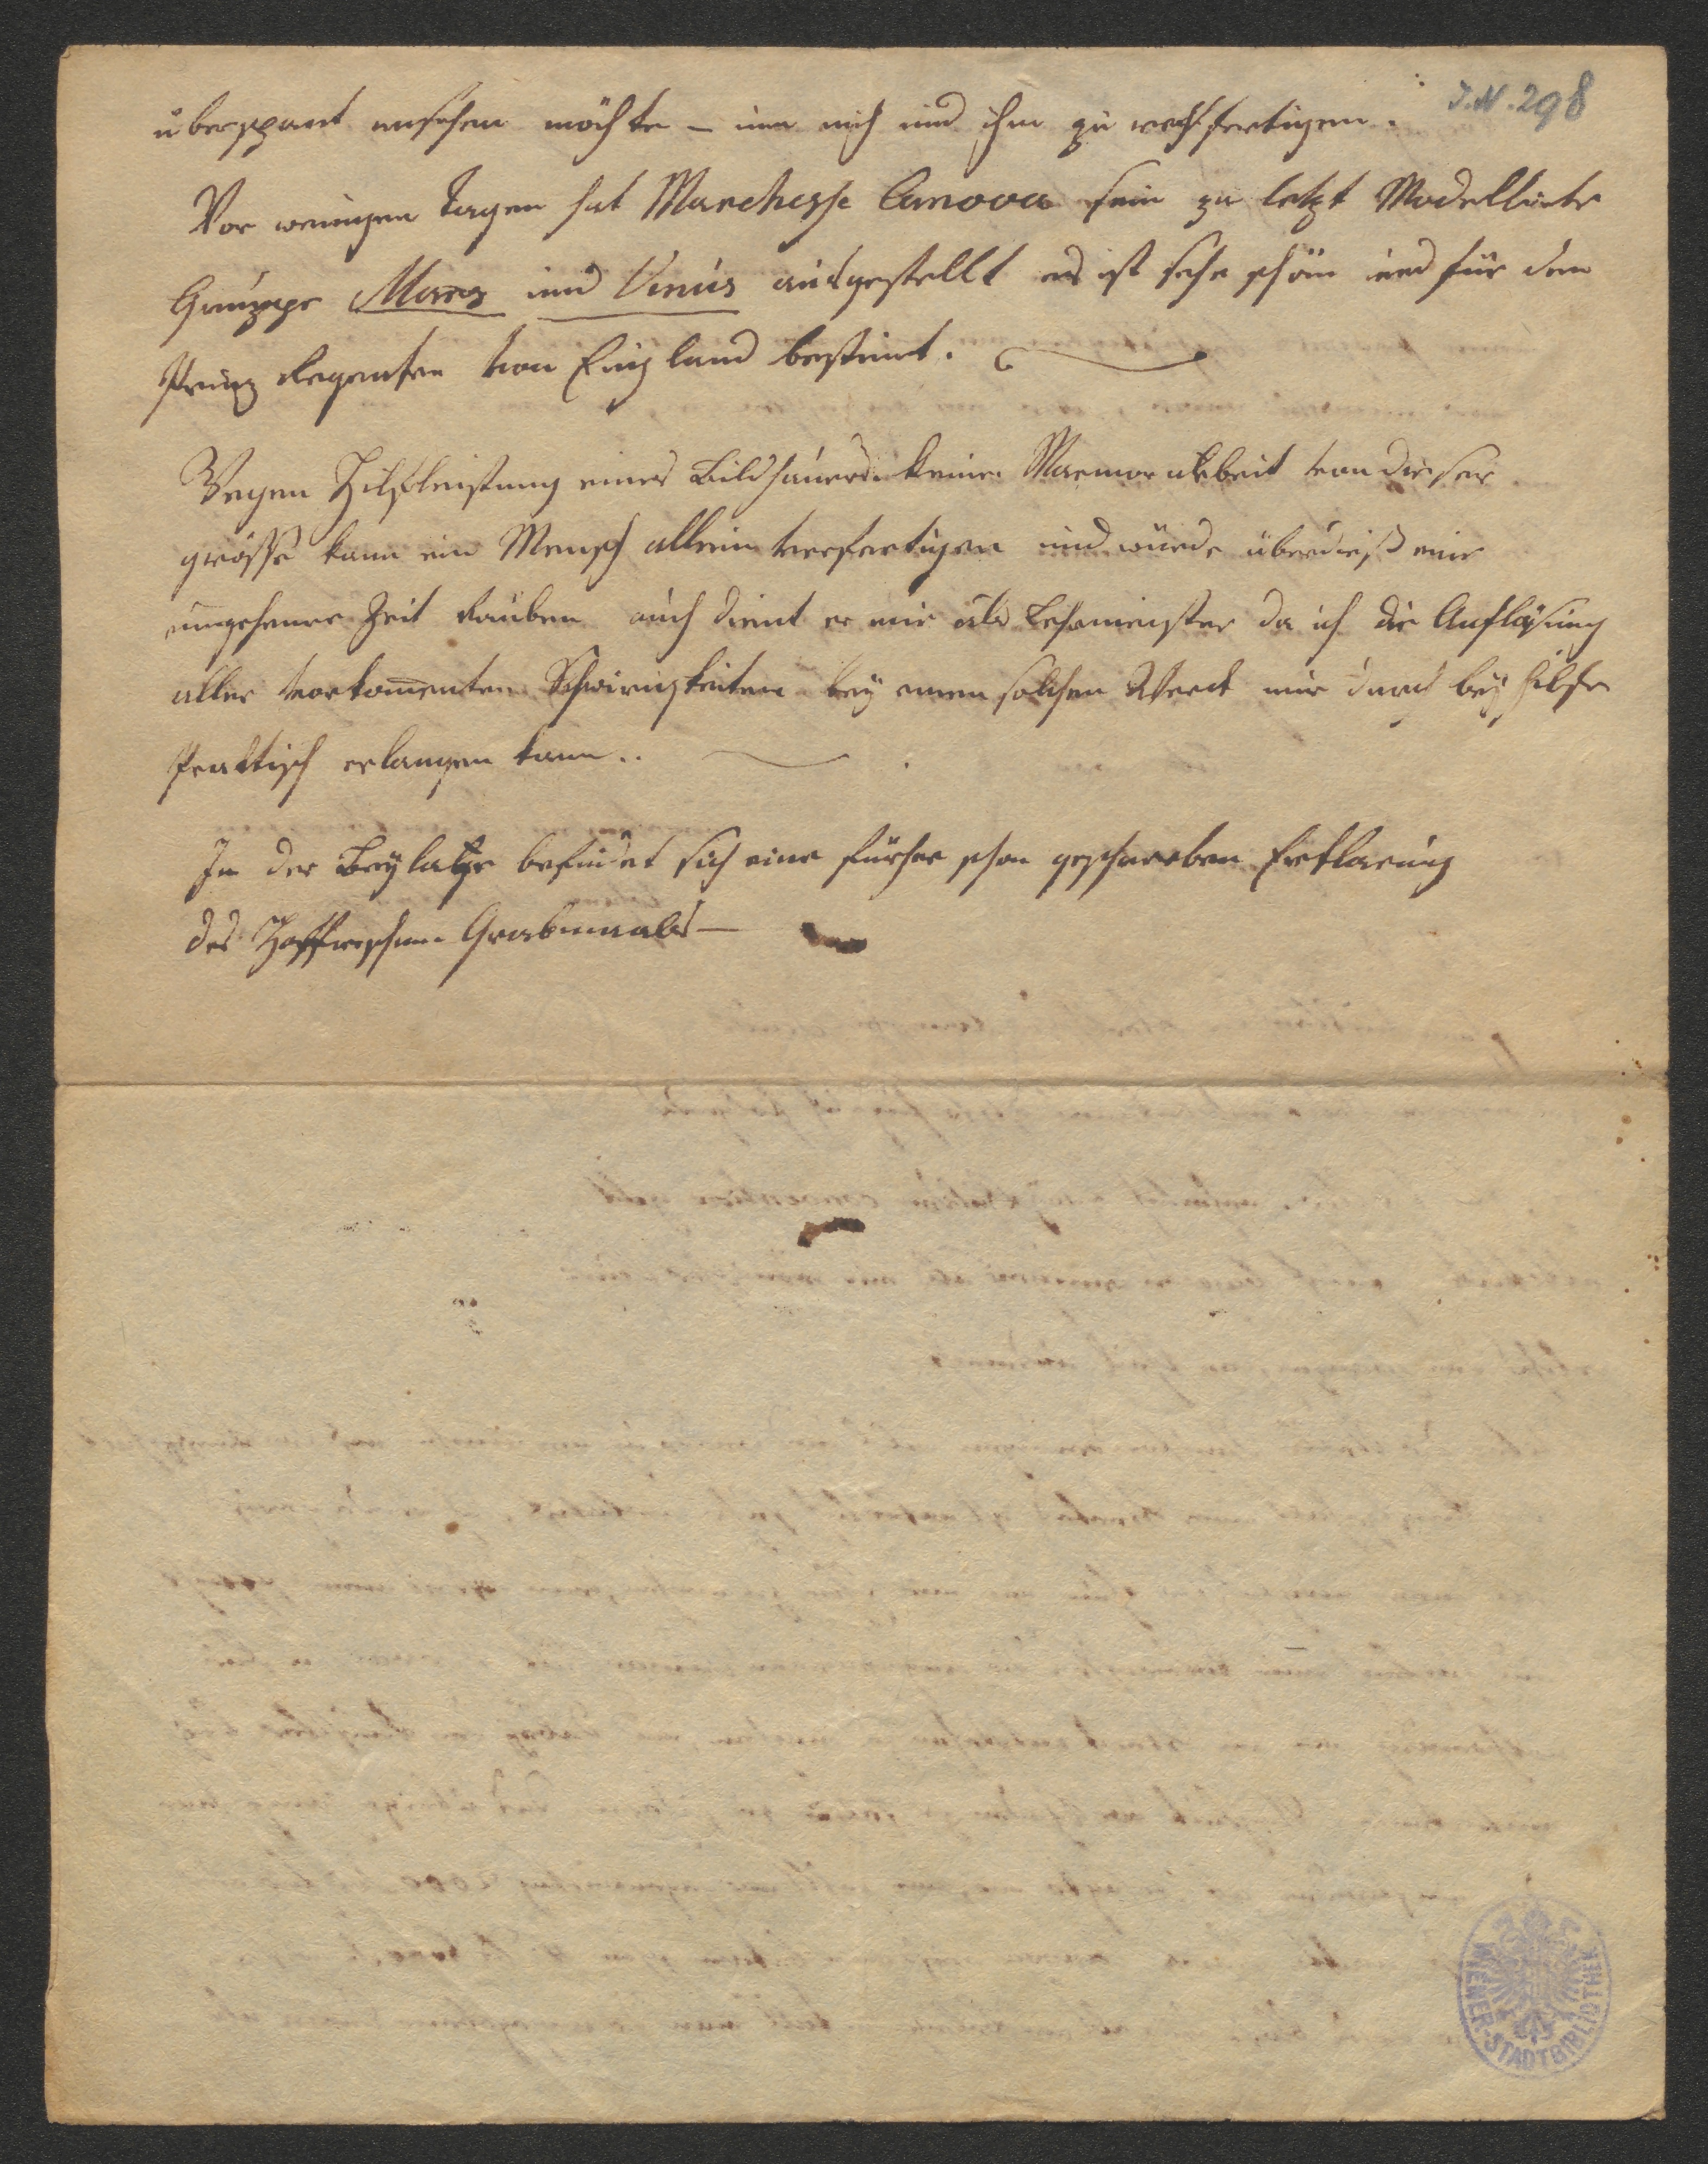 I.N. 298
überspant ansehen möchte – um mich und ihn zu rechtfertigen.
Vor wenigen Tagen hat Marchesse Canova sein zu letzt Modellirte
Gruppe Mars und Venus ausgestellt es ist sehr schön und für den
Prinz Regenten von England bestimt.
Wegen Hilfleistung eines Bildhauers. Keine Marmor arbeit von dieser
grösse kann ein Mensch allein verfertigen und würde überdieß mir
ungeheure Zeit rauben auch dient er mir als Lehrmeister da ich die Auflösung
aller vorkom̅enten Schwirigkeiten bey einen solchen Werck nur durch beyhilfe
Praktisch erlangen kann..
In der Beylage befindet sich eine früher schon geschrieben Erklarung
des Grabmals –
WIENER-STADTBIBLIOTHEK